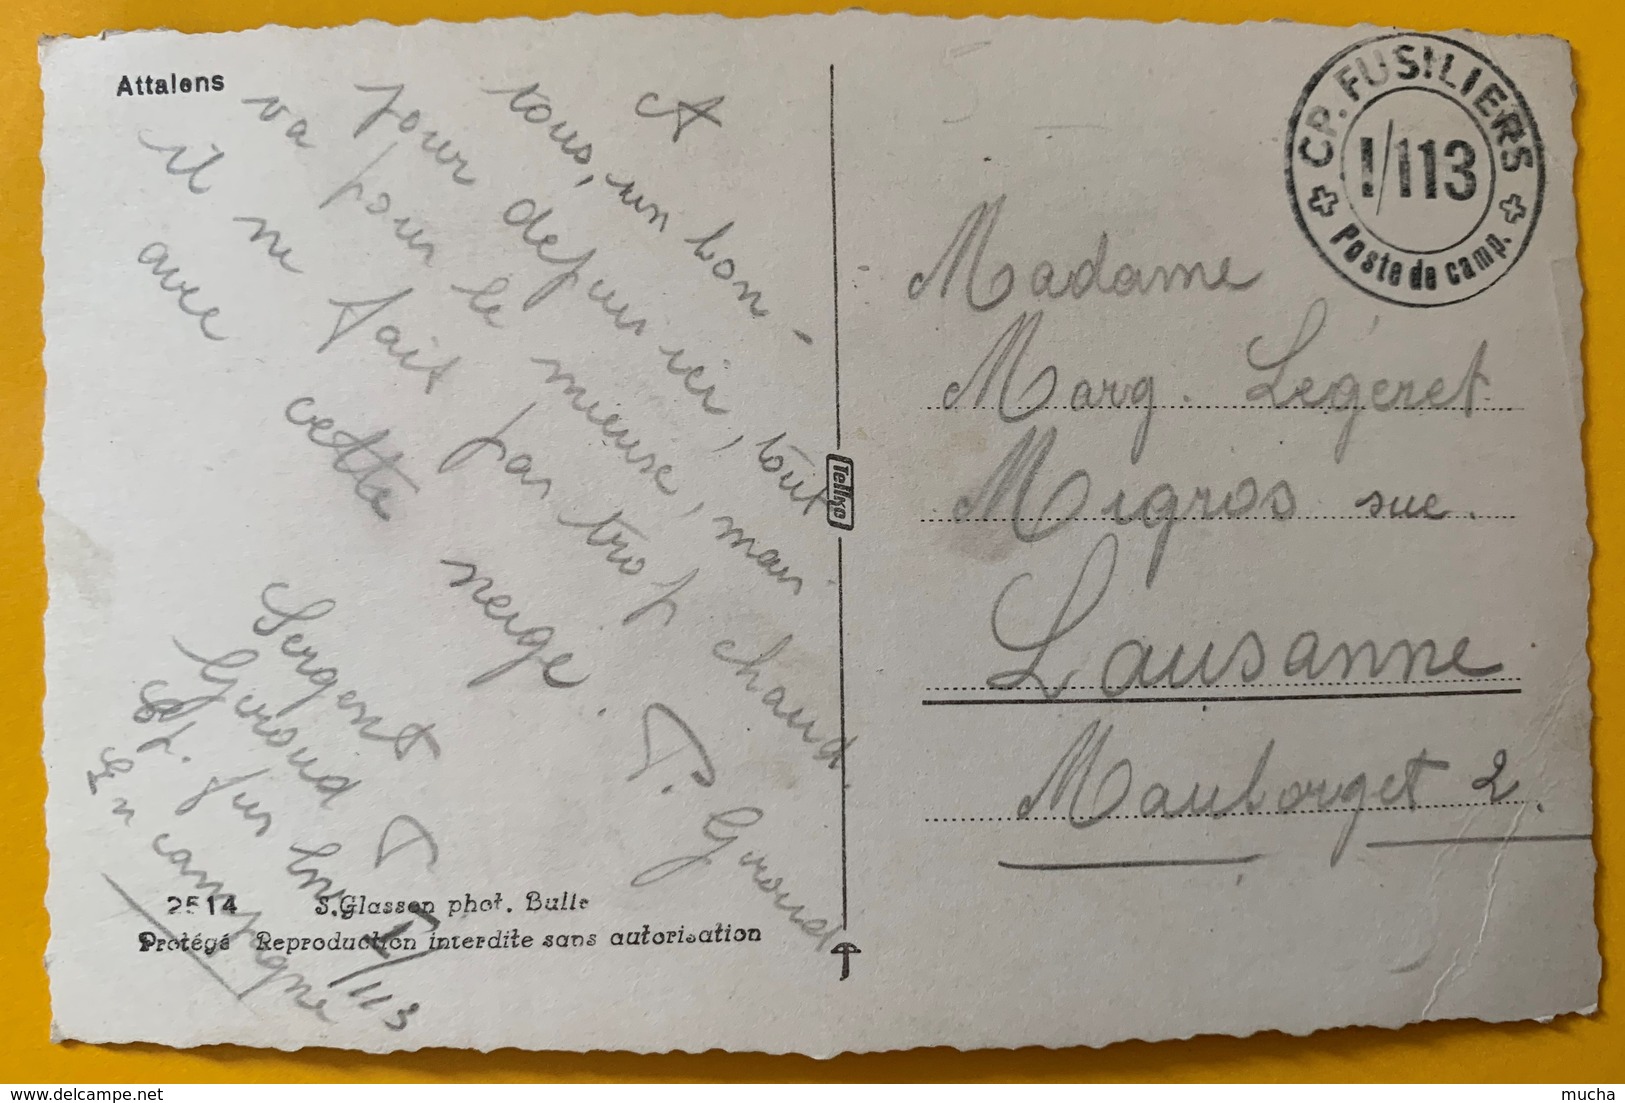 Attalens
A
tous, un bon-
jour depuis ici, tout
va pour le mieux, mais
il ne fait pas trop chaud
avec cette neige.
P. Giroud
Sergent
Giroud P
Cp. fus I/113
En campagne
2514 S. Glasson phot. Bulle
Protégé Reproduction interdite sans autorisation
Tellko
CP. FUSILIERS
I/113
Poste de camp.
Madame
Marg. Légeret
Migros suc.
Lausanne
Mauborget 2.
mucha